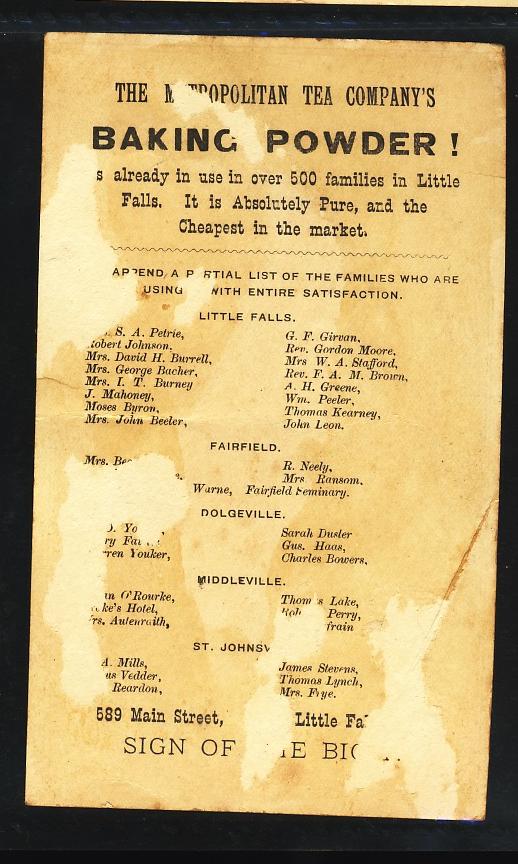 THE METROPOLITAN TEA COMPANY'S
BAKING POWDER !
already in use in over 500 families in Little
Falls. It is Absolutely Pure, and the
Cheapest in the market.
APPEND A PARTIAL LIST OF THE FAMILIES WHO ARE
USING WITH ENTIRE SATISFACTION.
LITTLE FALLS.
S. A. Petrie,
Robert Johnson.
Mrs. David H. Burrell,
Mrs. George Bacher,
Mrs. I. T. Burney
J. Mahoney,
Moses Byron,
Mrs. John Beeler,
G. F. Girvan,
Rev. Gordon Moore,
Mrs W. A. Stafford,
Rev. F. A. M. Brown,
A. H. Greene,
Wm. Peeler,
Thomas Kearney,
John Leon.
FAIRFIELD.
Mrs.
R. Neely,
Mrs Ransom,
Warne, Fairfield Seminary.
DOLGEVILLE.
Youker,
Sarah Duster
Gus. Haas,
Charles Bowers,
MIDDLEVILLE.
O'Rourke,
Hotel,
Mrs. Autenraith,
Thomas Lake,
Perry,
ST. JOHNSV
A. Mills,
Vedder,
Reardon,
James Stevens,
Thomas Lynch,
Mrs. Frye.
589 Main Street, Little Fa
SIGN OF THE BIG